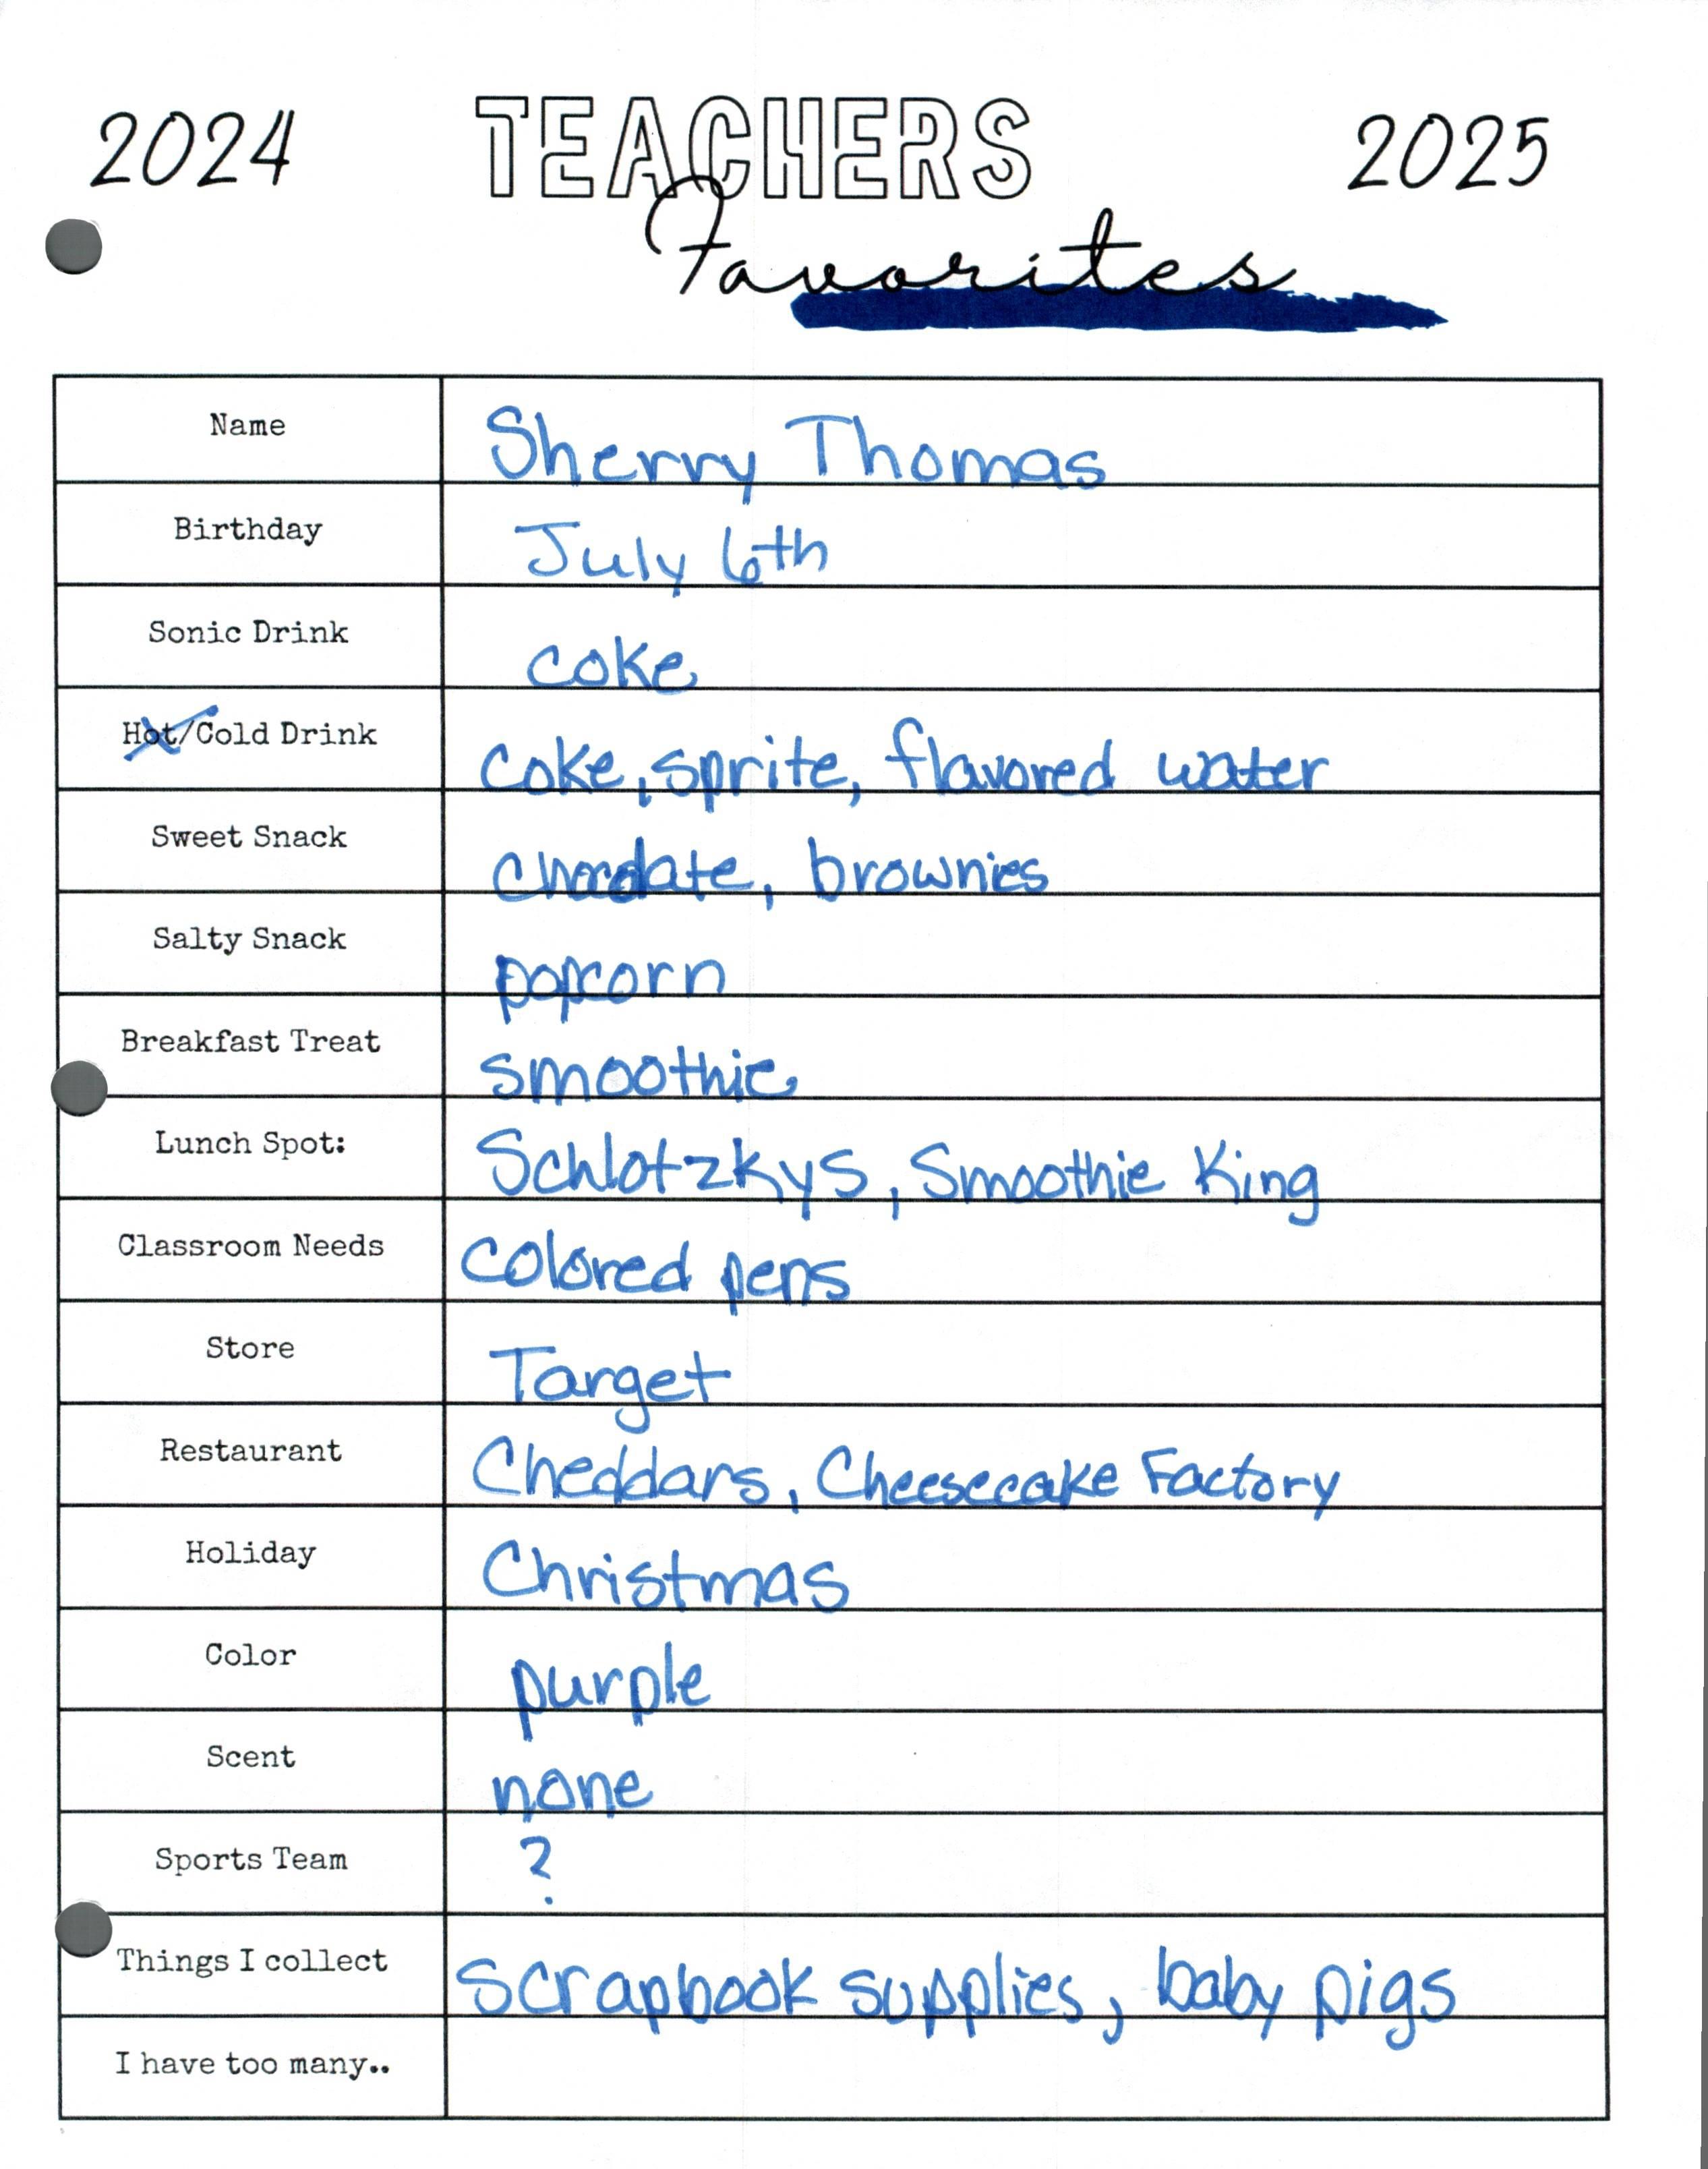 2024 TEACHERS 2025
Favorites
Name Sherry Thomas
Birthday July 6th
Sonic Drink coke
Hot/Cold Drink coke, sprite, flavored water
Sweet Snack chocolate, brownies
Salty Snack popcorn
Breakfast Treat smoothie
Lunch Spot: Schlotzkys, Smoothie King
Classroom Needs colored pens
Store Target
Restaurant Cheddars, Cheesecake Factory
Holiday Christmas
Color purple
Scent none
Sports Team ?
Things I collect scrapbook supplies, baby pigs
I have too many..